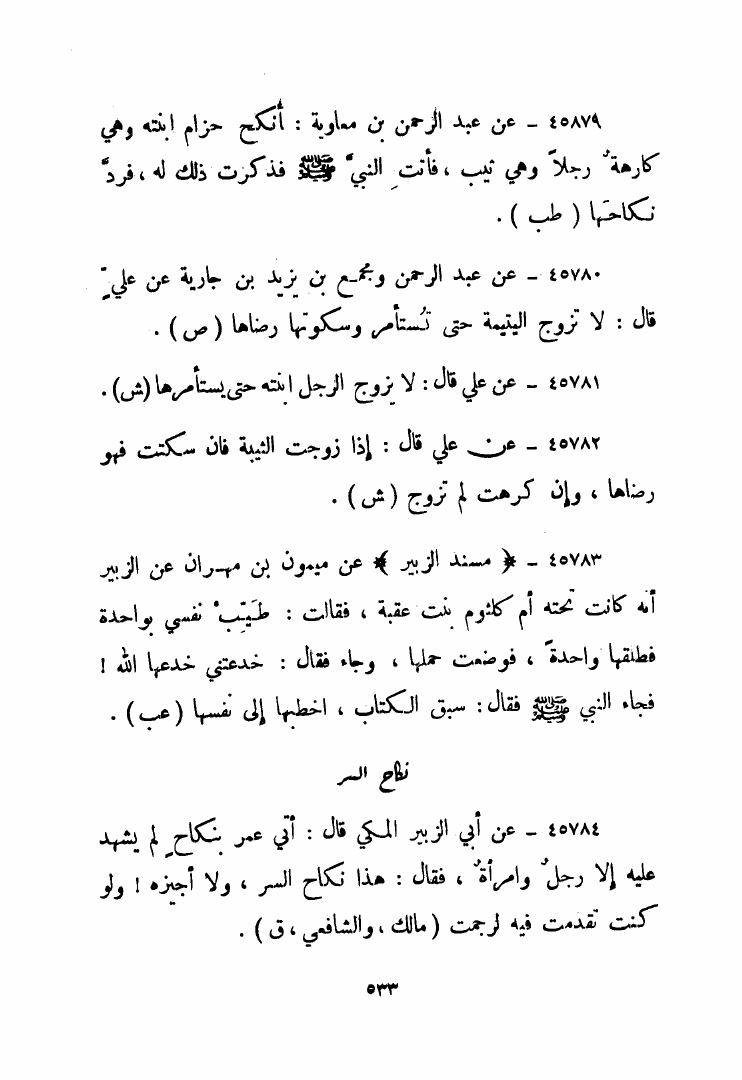 ٤٥٨٧٩ – عن عبد الرحمن بن معاوية : أنكح حزام ابنته وهي
كارهةٌ رجلاً وهي ثيب ، فأتتِ النبيَّ ﷺ فذكرت ذلك له ، فردَّ
نكاحَها ( طب ) .
٤٥٧٨٠ – عن عبد الرحمن ومجمع بن يزيد بن جارية عن عليٍّ
قال : لا تزوج اليتيمة حتى تُستأمر وسكوتها رضاها ( ص ) .
٤٥٧٨١ – عن علي قال : لا يزوج الرجل ابنته حتى يستأمرها (ش) .
٤٥٧٨٢ – عن علي قال : إذا زوجت الثيبة فان سكتت فهو
رضاها ، وإن كرهت لم تزوج ( ش ) .
٤٥٧٨٣ – ﴿ مسند الزبير ﴾ عن ميمون بن مهران عن الزبير
أنه كانت تحته أم كلثوم بنت عقبة ، فقالت : طَيِّبْ نفسي بواحدة
فطلقها واحدةً ، فوضعت حملها ، وجاء فقال : خدعتني خدعها الله !
فجاء النبي ﷺ فقال : سبق الكتاب ، اخطبها إلى نفسها ( عب ) .
نكاح السر
٤٥٧٨٤ – عن أبي الزبير المكي قال : أتي عمر بنكاحٍ لم يشهد
عليه إلا رجلٌ وامرأةٌ ، فقال : هذا نكاح السر ، ولا أجيزه ! ولو
كنت تقدمت فيه لرجمت ( مالك ، والشافعي ، ق ) .
٥٣٣